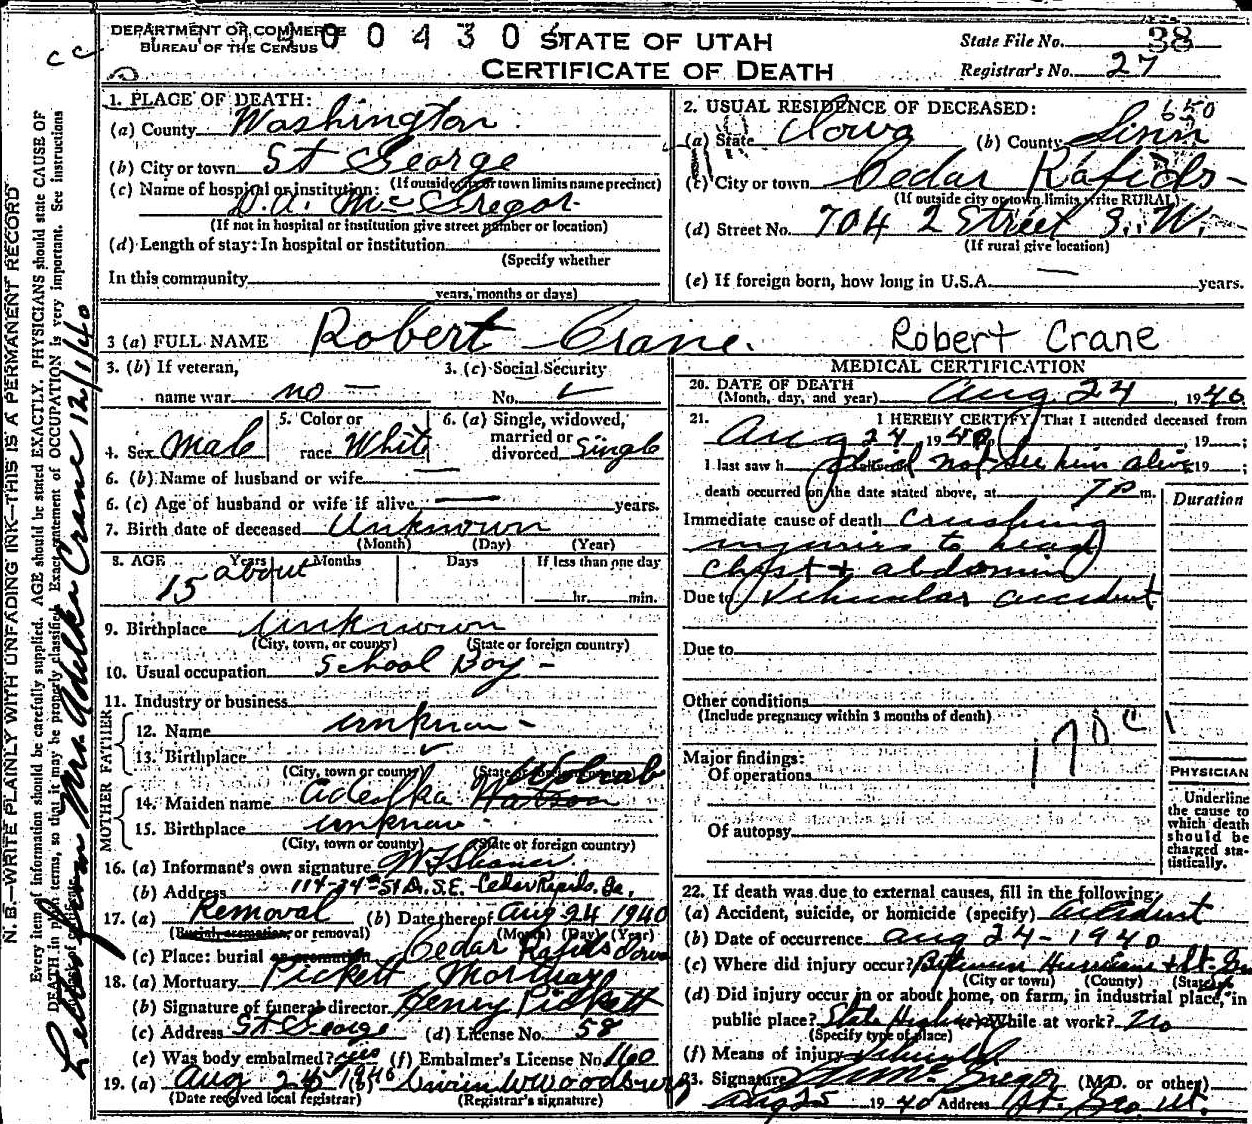 DEPARTMENT OF COMMERCE
BUREAU OF THE CENSUS
0 0 4 3 0
STATE OF UTAH
CERTIFICATE OF DEATH
State File No. 38
Registrar's No. 27
cc
N. B.—WRITE PLAINLY WITH UNFADING INK—THIS IS A PERMANENT RECORD
Every item of information should be carefully supplied. AGE should be stated EXACTLY. PHYSICIANS should state CAUSE OF
DEATH in plain terms, so that it may be properly classified. Exact statement of OCCUPATION is very important. See instructions
Letter from Mrs. Crane 12/1/40
1. PLACE OF DEATH:
(a) County Washington
(b) City or town St George
(If outside city or town limits name precinct)
(c) Name of hospital or institution:
D.A. McGregor
(If not in hospital or institution give street number or location)
(d) Length of stay: In hospital or institution
(Specify whether
In this community
years, months or days)
2. USUAL RESIDENCE OF DECEASED:
650
(a) State Iowa (b) County Linn
(c) City or town Cedar Rapids
(If outside city or town limits write RURAL)
(d) Street No. 704 2 Street S. W.
(If rural give location)
(e) If foreign born, how long in U.S.A. — years.
3 (a) FULL NAME Robert Crane. Robert Crane
3. (b) If veteran,
name war no —
3. (c) Social Security
No. ✓
4. Sex Male
5. Color or
race White
6. (a) Single, widowed,
married or
divorced Single
6. (b) Name of husband or wife —
6. (c) Age of husband or wife if alive — years.
7. Birth date of deceased Unknown
(Month) (Day) (Year)
8. AGE Years Months Days If less than one day
15 about
hr. min.
9. Birthplace Unknown
(City, town, or county) (State or foreign country)
10. Usual occupation School Boy -
11. Industry or business
FATHER
12. Name unknown -
13. Birthplace ✓
(City, town or county) (State or foreign country)
MOTHER
14. Maiden name Watson
15. Birthplace unknown
(City, town or county) (State or foreign country)
16. (a) Informant's own signature
(b) Address S.E. - Cedar Rapids, Ia.
17. (a) Removal (b) Date thereof Aug 24 1940
(Burial, cremation, or removal) (Month) (Day) (Year)
(c) Place: burial or cremation Cedar Rapids Iowa
18. (a) Mortuary Pickett Mortuary
(b) Signature of funeral director Henry Pickett
(c) Address St George (d) License No. 58
(e) Was body embalmed? yes (f) Embalmer's License No. 160
19. (a) Aug 25 1940 (b) Woodbury
(Date received local registrar) (Registrar's signature)
MEDICAL CERTIFICATION
20. DATE OF DEATH
(Month, day, and year) Aug 24, 1940
21. I HEREBY CERTIFY, That I attended deceased from
Aug 24, 1940, , 19 ;
I last saw h did not see him alive 19 ;
death occurred on the date stated above, at 7 P m.
Duration
Immediate cause of death crushing
injuries to head
chest + abdomin
Due to Vehicular accident
Due to
Other conditions
(Include pregnancy within 3 months of death)
170c1
Major findings:
Of operations
Of autopsy
PHYSICIAN
Underline
the cause to
which death
should be
charged sta-
tistically.
22. If death was due to external causes, fill in the following:
(a) Accident, suicide, or homicide (specify) accident
(b) Date of occurrence aug 24 - 1940
(c) Where did injury occur? Between Hurricane + St. Geo
(City or town) (County) (State)
(d) Did injury occur in or about home, on farm, in industrial place, in
public place? State Highway While at work? No
(Specify type of place)
(f) Means of injury Vehicle
23. Signature McGregor (M.D. or other)
aug 25 1940 Address St. Geo, Ut.